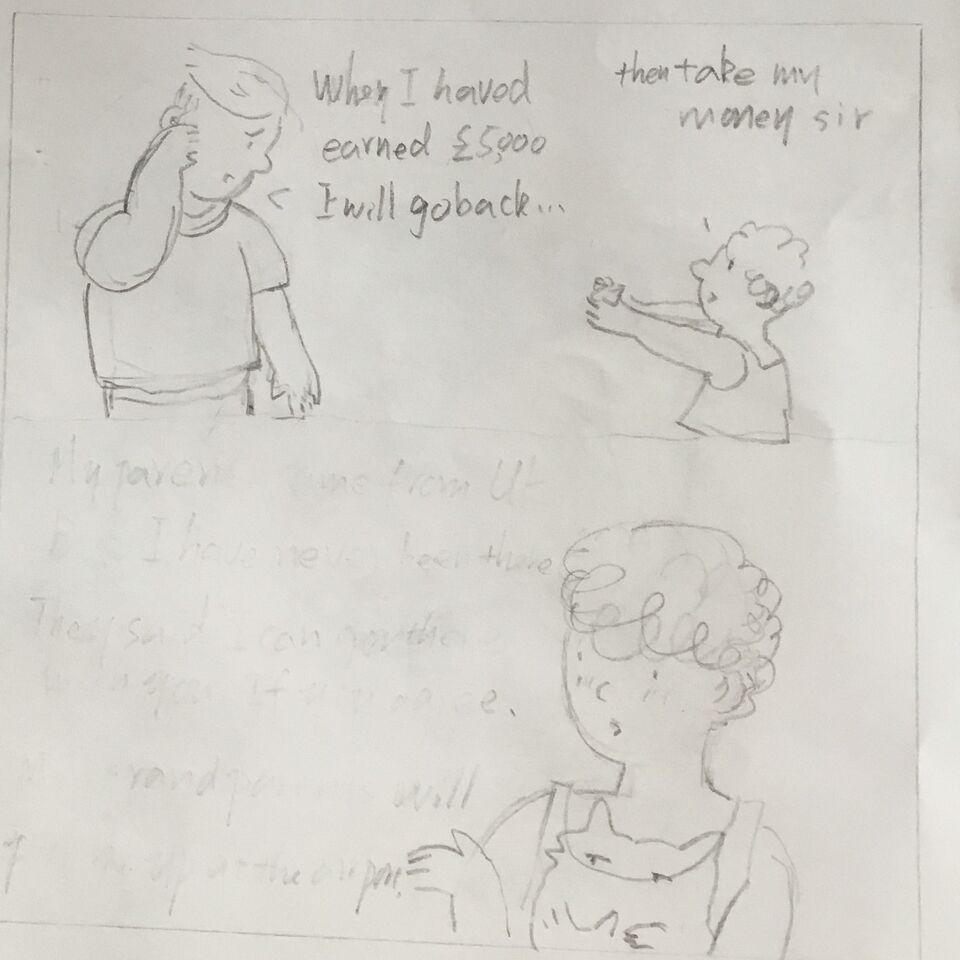 When I haved
earned £5,000
I will go back...
then take my
money sir
My from
I have never been there
They said I can go there
you If
will
up at the airport